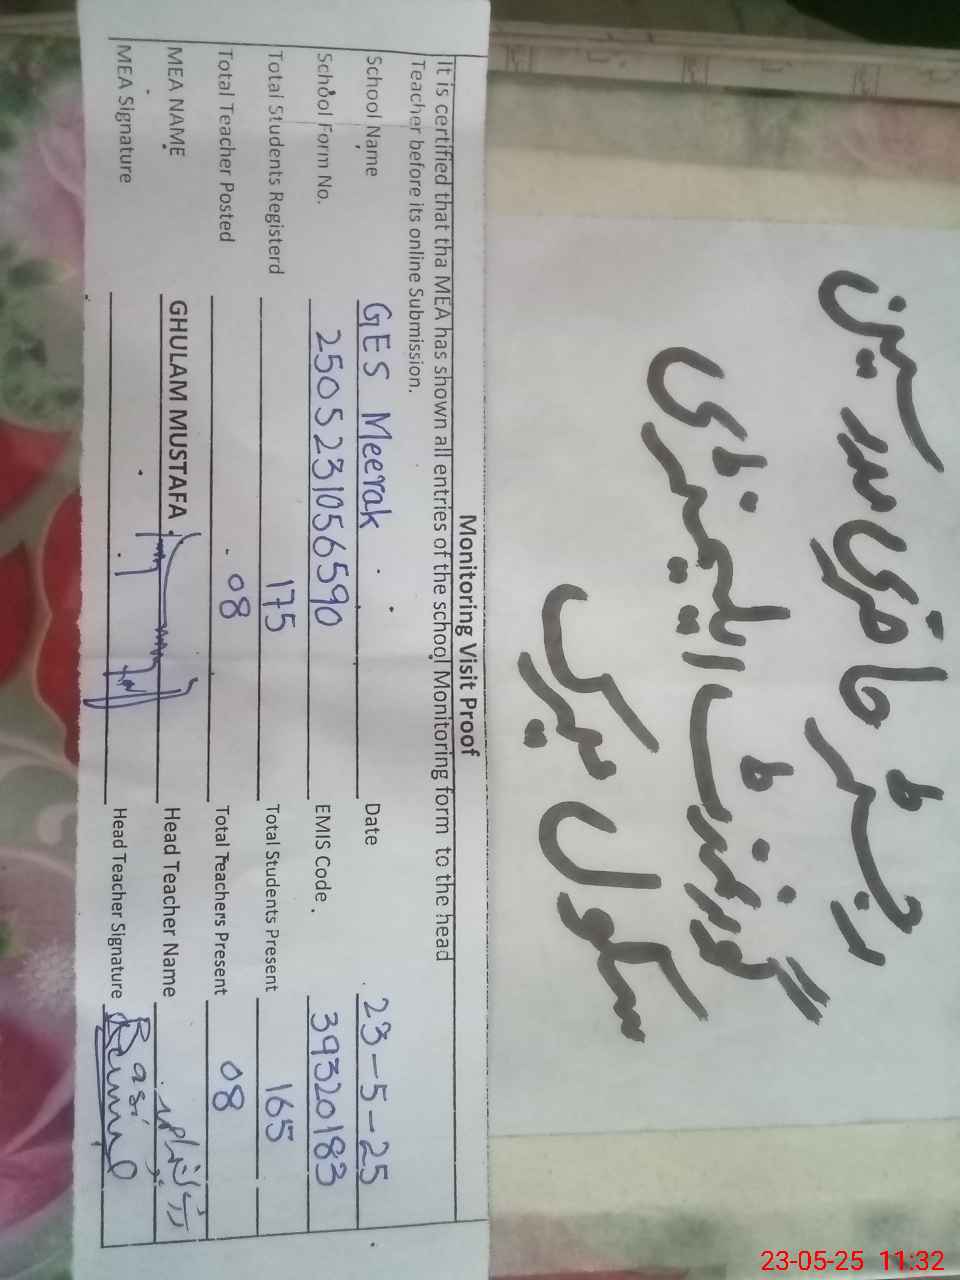 رجسٹر حاضری مدرسین
گورنمنٹ ایلیمنٹری
سکول میرک
Monitoring Visit Proof
It is certified that tha MEA has shown all entries of the school Monitoring form to the head
Teacher before its online Submission.
School Name GES Meerak Date 23-5-25
School Form No. 2505231056590 EMIS Code. 39320183
Total Students Registerd 175 Total Students Present 165
Total Teacher Posted 08 Total Teachers Present 08
MEA NAME GHULAM MUSTAFA Head Teacher Name
MEA Signature Head Teacher Signature
23-05-25 11:32